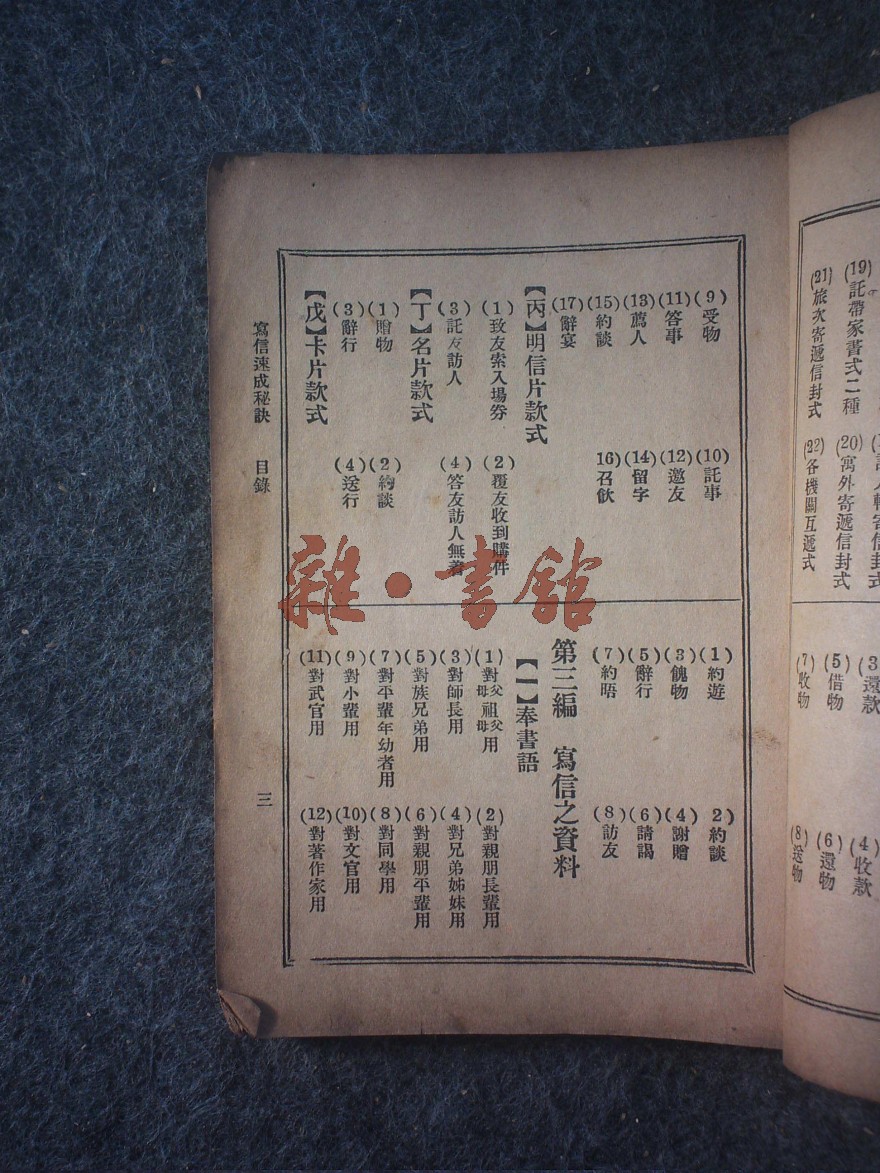 (19)託帶家書式二種
(20)寓外寄遞信封式
(21)旅次寄遞信封式
(22)各機關互遞式
(3)還款
(4)收款
(5)借物
(6)還物
(7)收物
(8)送物
(9)受物
(10)託事
(11)答事
(12)邀友
(13)薦人
(14)留字
(15)約談
16)召飲
(17)辭宴
【丙】明信片款式
(1)致友索入場券
(2)覆友收到購件
(3)託友訪人
(4)答友訪人無着
【丁】名片款式
(1)贈物
(2)約談
(3)辭行
(4)送行
【戊】卡片款式
(1)約遊
2)約談
(3)餽物
(4)謝贈
(5)辭行
(6)請謁
(7)約晤
(8)訪友
第三編 寫信之資料
【一】奉書語
(1)對父母祖父母用
(2)對親朋長輩用
(3)對師長用
(4)對兄弟姊妹用
(5)對族兄弟用
(6)對親朋平輩用
(7)對平輩年幼者用
(8)對同學用
(9)對小輩用
(10)對文官用
(11)對武官用
(12)對著作家用
寫信速成秘訣 目錄
三
雜·書館